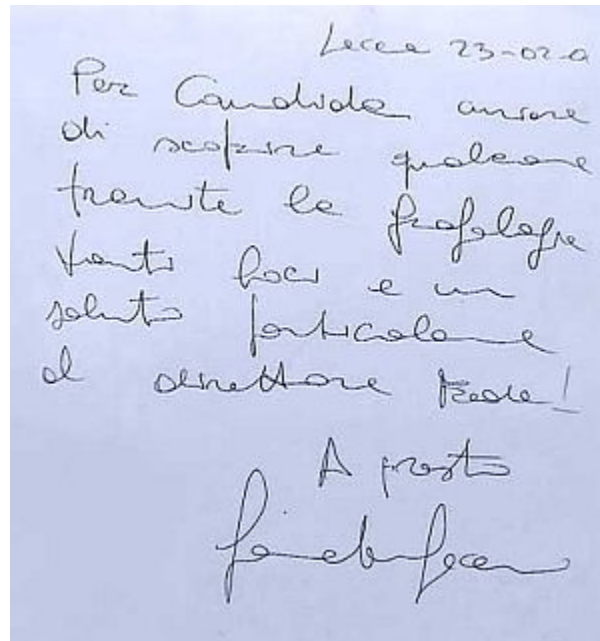 Lecce 23-02-0
Per Candida ansiosa
di scoprire qualcosa
tramite la grafologia
Tanti baci e un
saluto particolare
al direttore
A presto